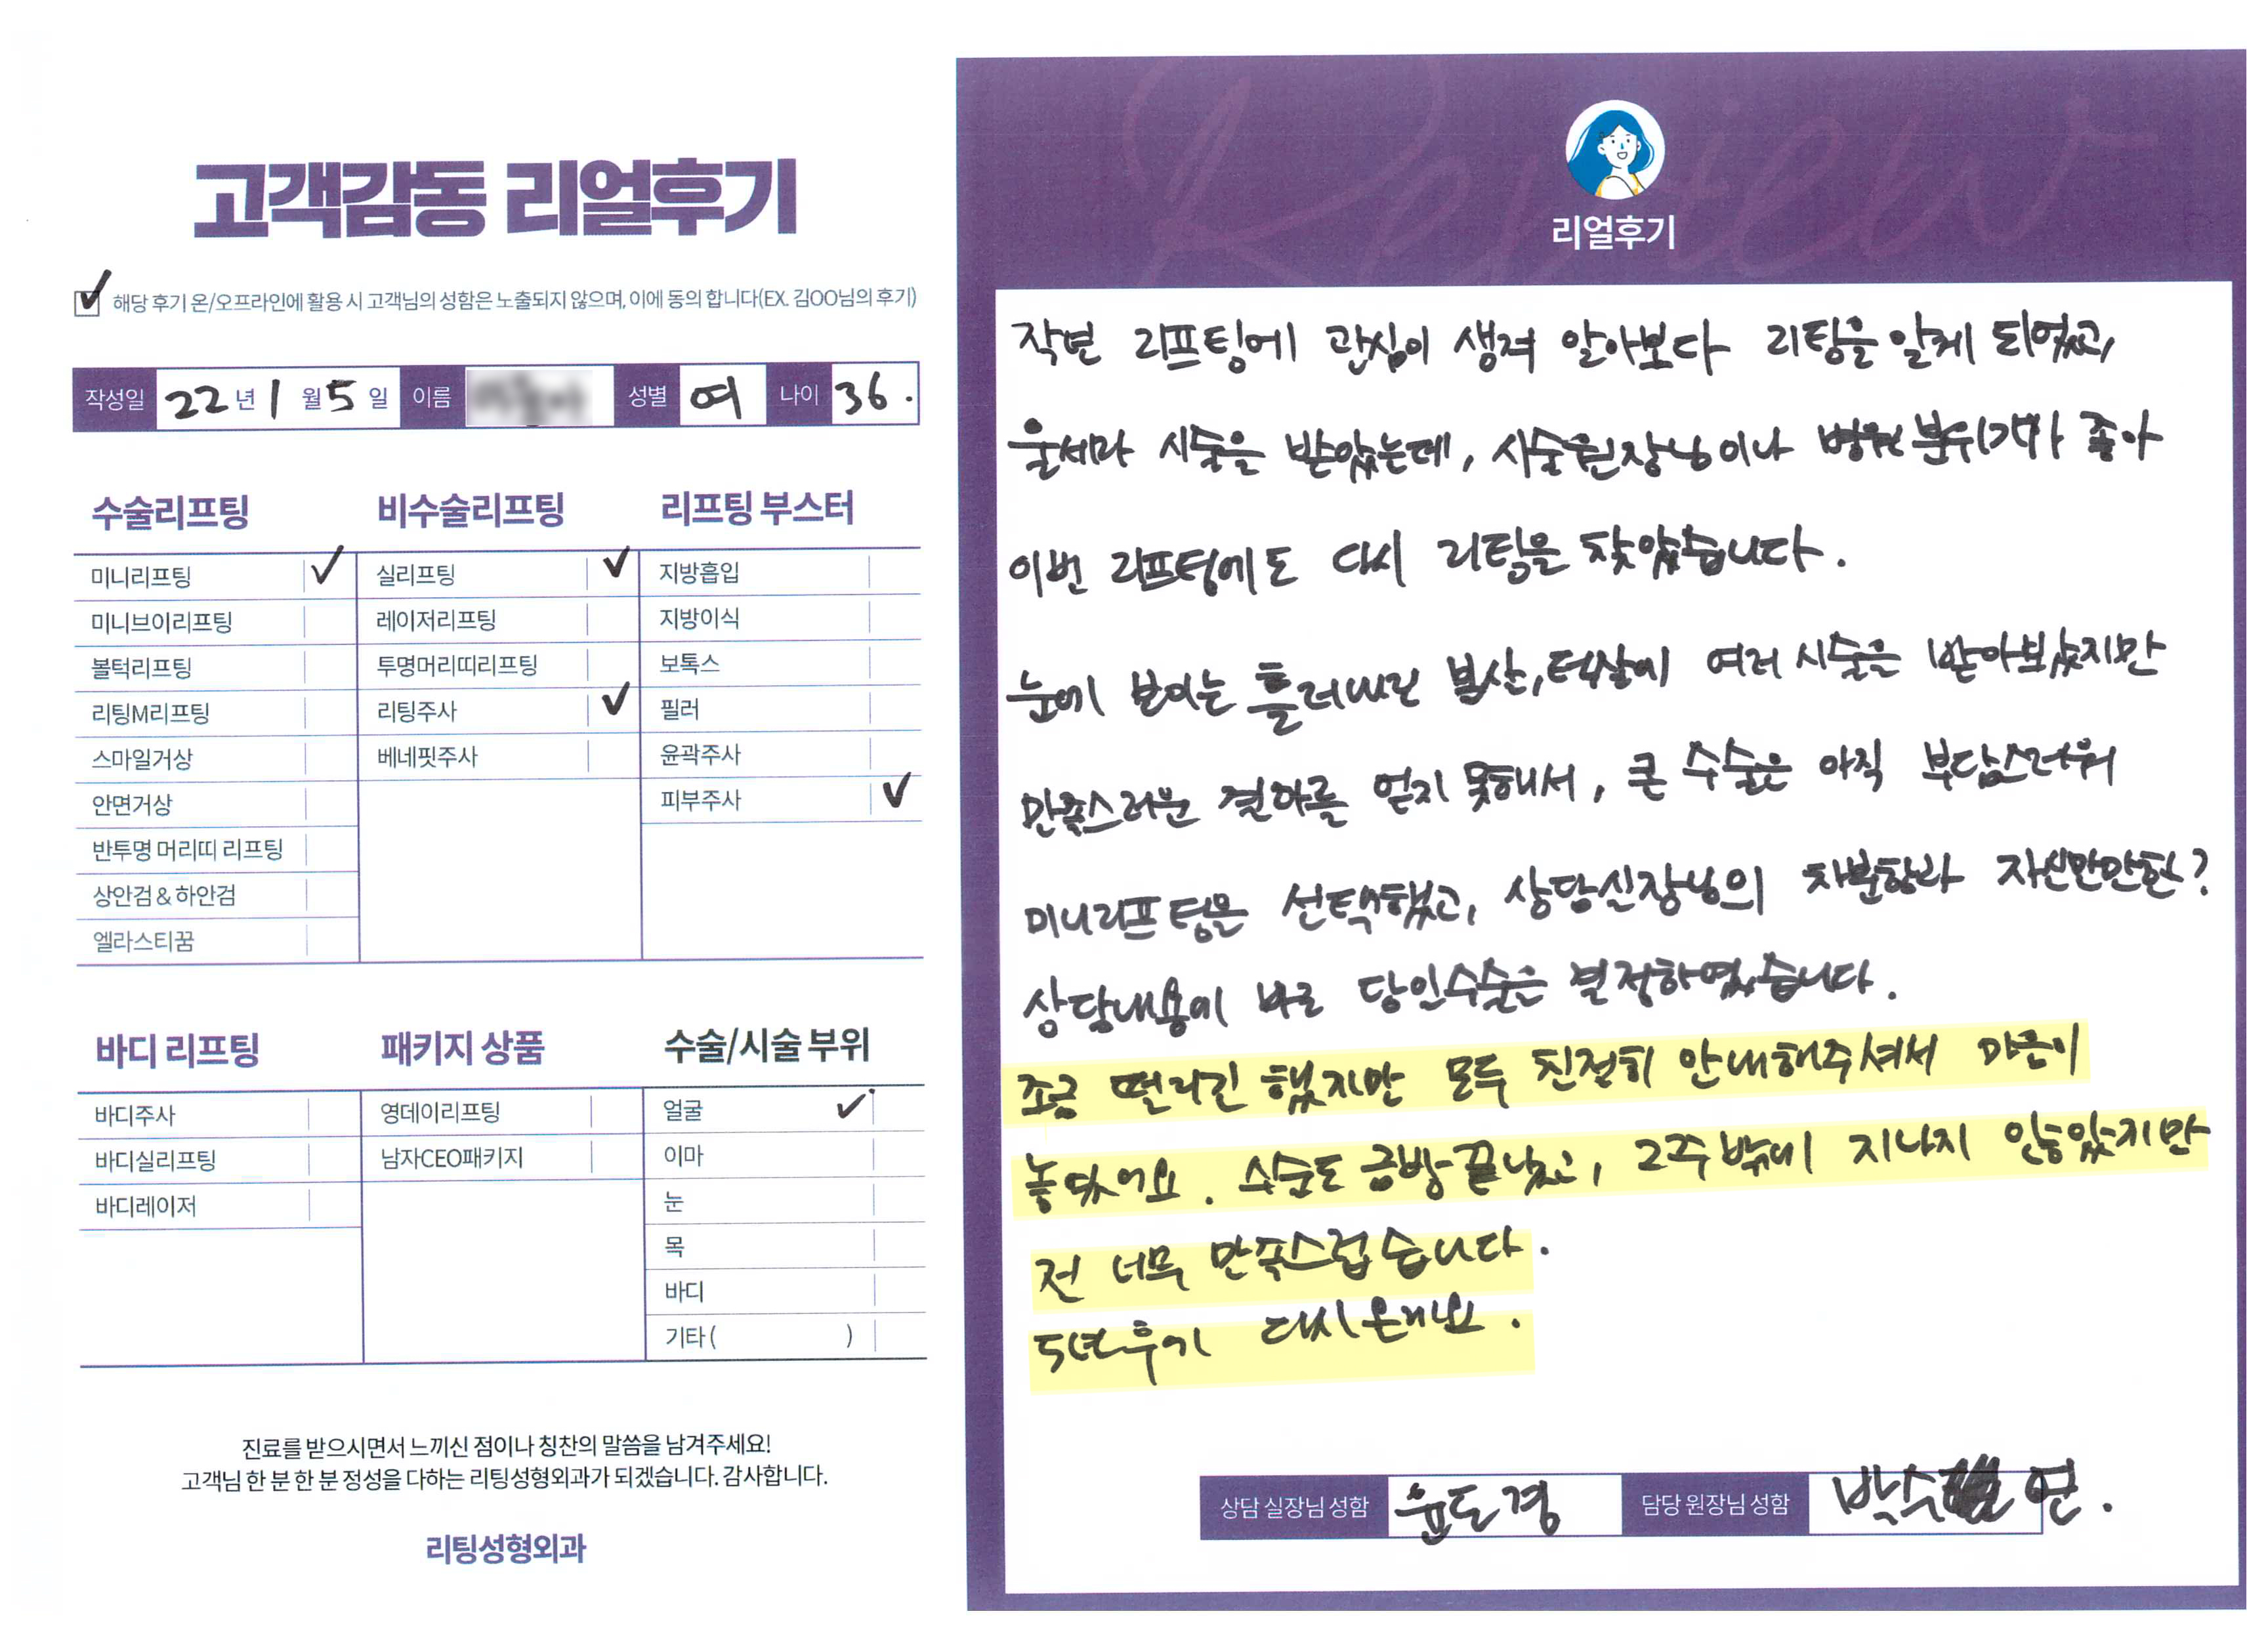 고객감동 리얼후기
해당 후기 온/오프라인에 활용 시 고객님의 성함은 노출되지 않으며, 이에 동의 합니다(EX. 김OO님의 후기)
작성일 22년 1월 5일 이름 성별 여 나이 36.
수술리프팅 비수술리프팅 리프팅 부스터
미니리프팅 ✓ 실리프팅 ✓ 지방흡입
미니브이리프팅 레이저리프팅 지방이식
볼턱리프팅 투명머리띠리프팅 보톡스
리팅M리프팅 리팅주사 ✓ 필러
스마일거상 베네핏주사 윤곽주사
안면거상 피부주사 ✓
반투명 머리띠 리프팅
상안검 & 하안검
엘라스티꿈
바디 리프팅 패키지 상품 수술/시술 부위
바디주사 영데이리프팅 얼굴 ✓
바디실리프팅 남자CEO패키지 이마
바디레이저 눈
목
바디
기타 ( )
진료를 받으시면서 느끼신 점이나 칭찬의 말씀을 남겨주세요!
고객님 한 분 한 분 정성을 다하는 리팅성형외과가 되겠습니다. 감사합니다.
리팅성형외과
Review
리얼후기
작년 리프팅에 관심이 생겨 알아보다 리팅을 알게 되었고,
울쎄라 시술을 받았는데, 시술원장님이나 병원분위기가 좋아
이번 리프팅에도 다시 리팅을 찾았습니다.
눈에 보이는 흘러내린 볼살, 턱살에 여러 시술은 받아보았지만
만족스러운 결과를 얻지 못해서, 큰 수술은 아직 부담스러워
미니리프팅을 선택했고, 상담실장님의 차분함과 자신만만한?
상담내용에 바로 당일수술은 결정하였습니다.
조금 떨리긴 했지만 모두 친절히 안내해주셔서 마음이
놓였어요. 수술도 금방 끝났고, 2주밖에 지나지 않았지만
전 너무 만족스럽습니다.
5년후기 다시 온게요.
상담 실장님 성함 윤도경 담당 원장님 성함 박수연.